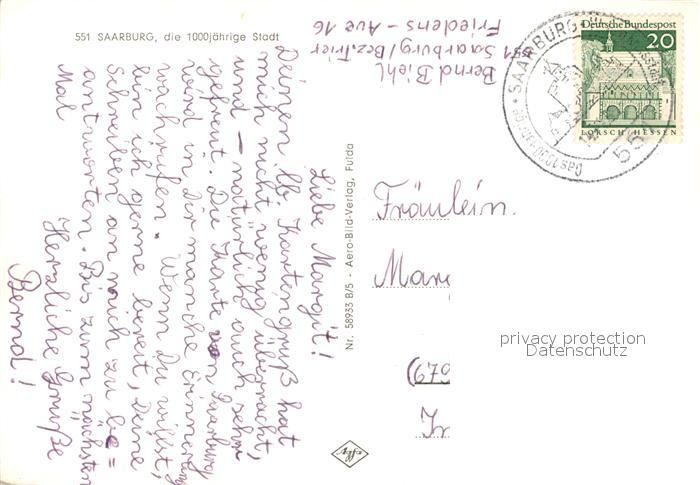 551 SAARBURG, die 1000jährige Stadt
Bernd Biehl
551 Saarburg/Bez. Trier
Friedens-Ave 16
Deutsche Bundespost
20
LORSCH HESSEN
SAARBURG
551
Liebe Margit!
Deinen lb. Kartengruß hat
mich nicht wenig überrascht,
und – natürlich auch sehr
gefreut. Die Karte von Saarburg
wird in Dir manche Erinnerung
wachrufen. Wenn Du willst,
bin ich gerne bereit, Deine
Schreiben an mich zu be=
antworten. Bis zum nächsten
Mal
Herzliche Grüße
Bernd!
Nr. 58933 B/5 - Aero-Bild-Verlag, Fulda
Agfa
Fräulein
Mar
(679
privacy protection
Datenschutz